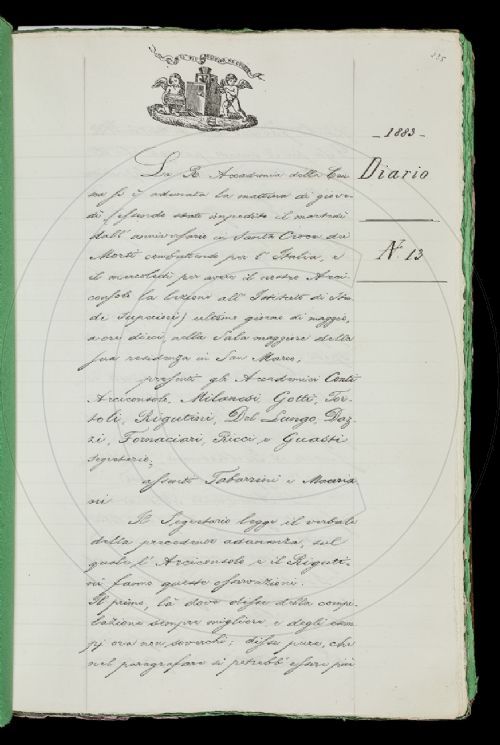 IL PIÙ BEL FIOR NE COGLIE
225
- 1883 -
Diario
N. 13
La R. Accademia della Cru-
sca si è adunata la mattina di giove-
dì (essendo stato impedito il martedì
dall' anniversario in Santa Croce dei
Morti combattendo per l' Italia, e
il mercoledì per avere il nostro Arci-
consolo la lezione all' Istituto di Stu-
di Superiori) ultimo giorno di maggio,
a ore dieci, nella Sala maggiore della
sua residenza in San Marco;
presenti gli Accademici Conti
Arciconsolo, Milanesi, Gotti, Tor-
toli, Rigutini, Del Lungo, Daz-
zi, Fornaciari, Ricci e Guasti
segretario;
assenti Tabarrini e
Il Segretario legge il verbale
della precedente adunanza, sul
quale l' Arciconsolo e il Riguti-
ni fanno queste osservazioni.
Il primo, là dove disse della compi-
lazione sempre migliore e degli esem-
pj ora non soverchi; disse pure, che
nel paragrafare si potrebb' essere più